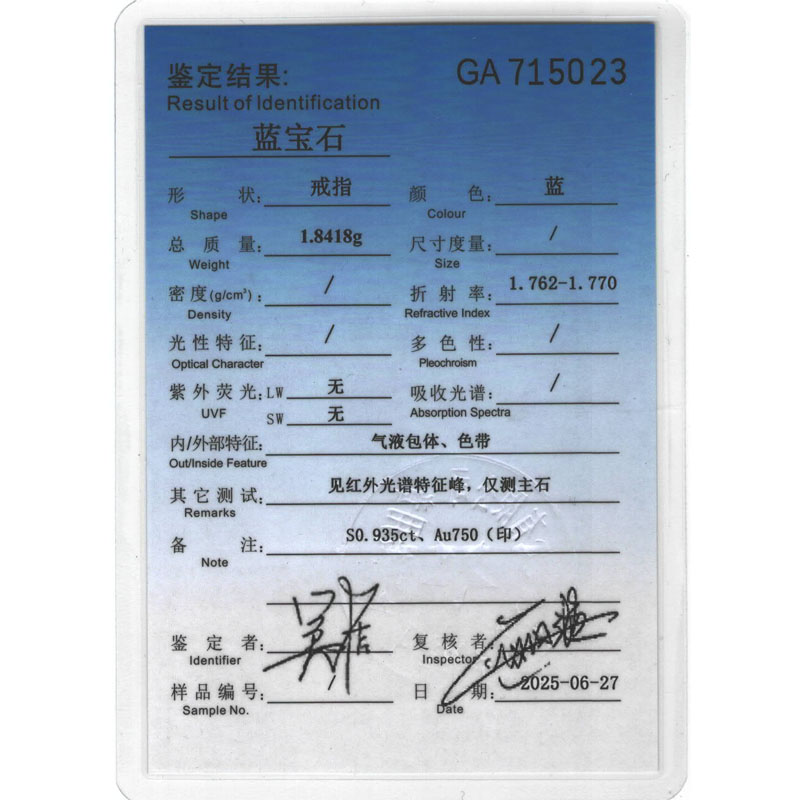 鉴定结果: GA 715023
Result of Identification
蓝宝石
形 状: 戒指 颜 色: 蓝
Shape Colour
总 质 量: 1.8418g 尺寸度量: /
Weight Size
密度(g/cm³): / 折 射 率: 1.762-1.770
Density Refractive Index
光性特征: / 多 色 性: /
Optical Character Pleochroism
紫外荧光: LW 无 吸收光谱: /
UVF SW 无 Absorption Spectra
内/外部特征: 气液包体、色带
Out/Inside Feature
其它测试: 见红外光谱特征峰，仅测主石
Remarks
备 注: S0.935ct、Au750（印）
Note
鉴 定 者: 复 核 者:
Identifier Inspector
样品编号: / 日 期: 2025-06-27
Sample No. Date